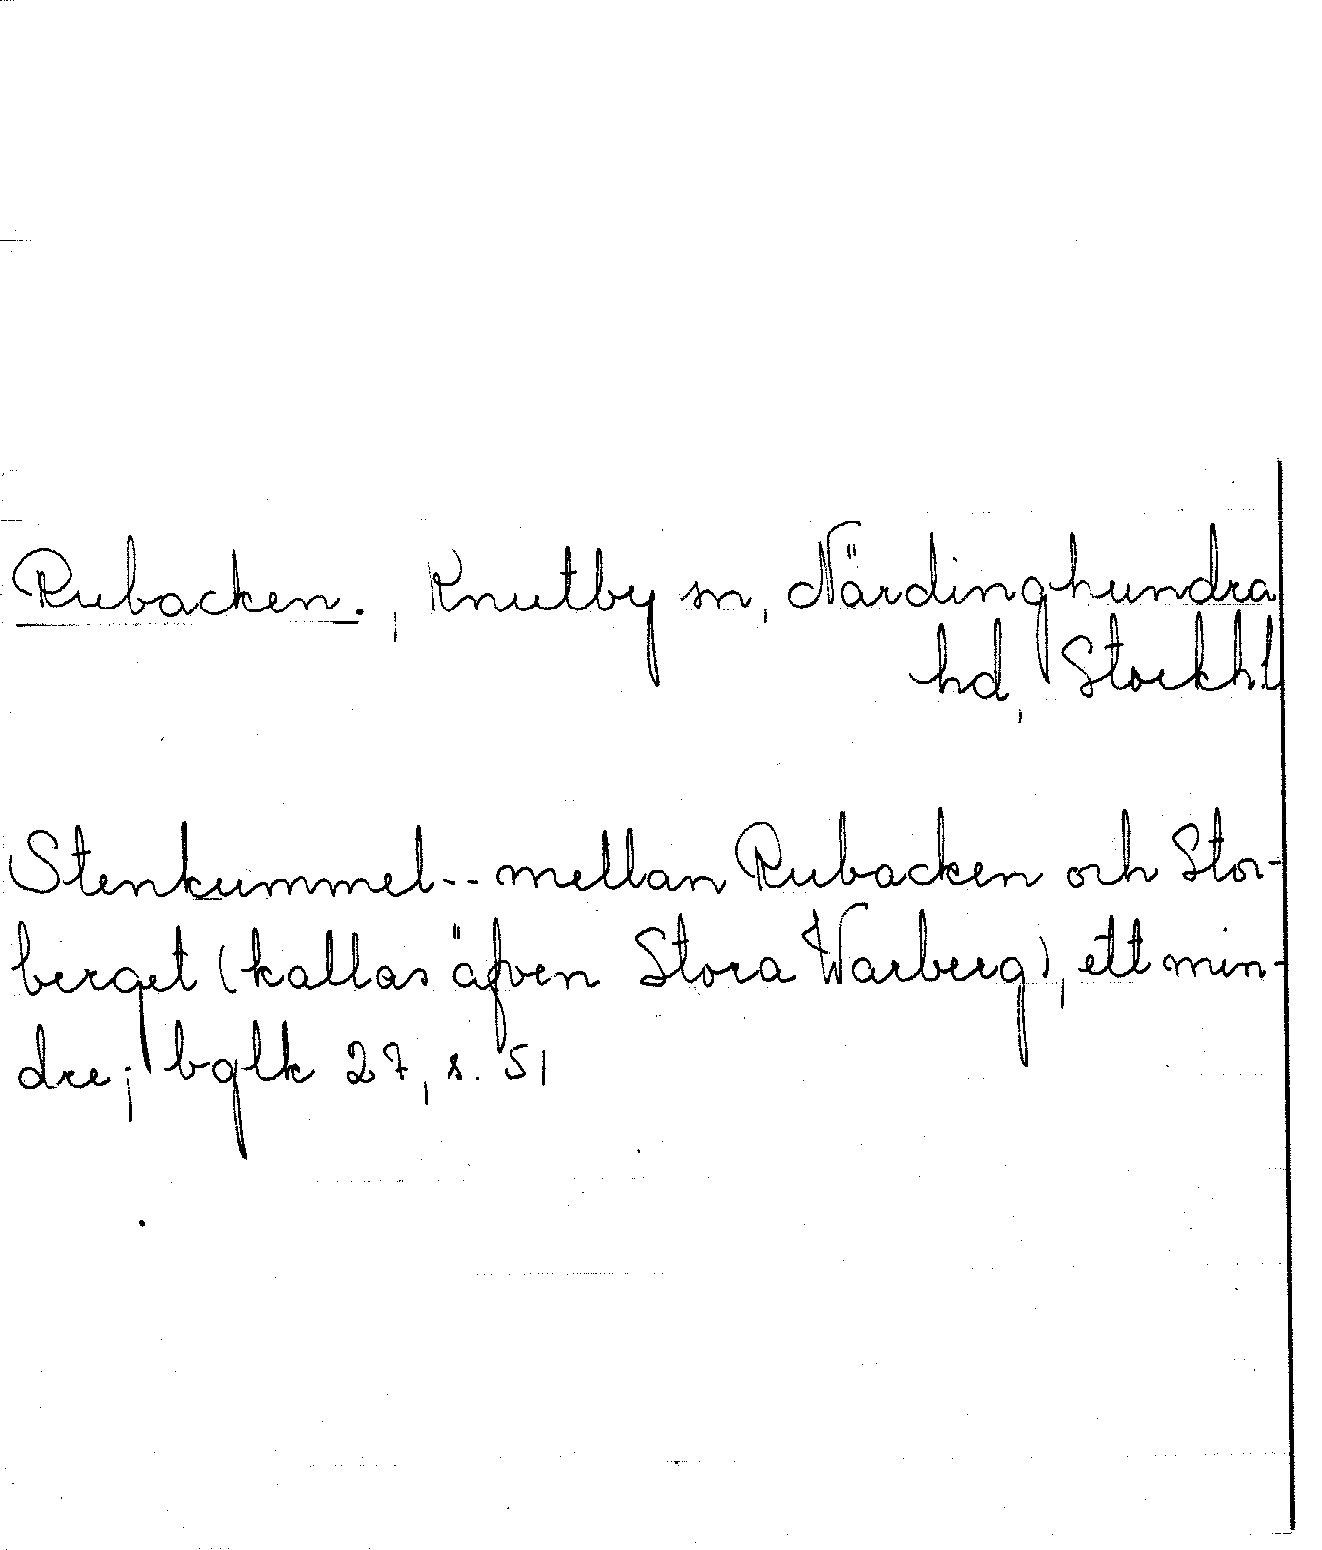 Rubacken., Knutby sn, Närdinghundra
hd, Stockh.l
Stenkummel-- mellan Rubacken och Stor-
berget (kallas äfven Stora Warberg), ett min-
dre; bglk 27, s. 51